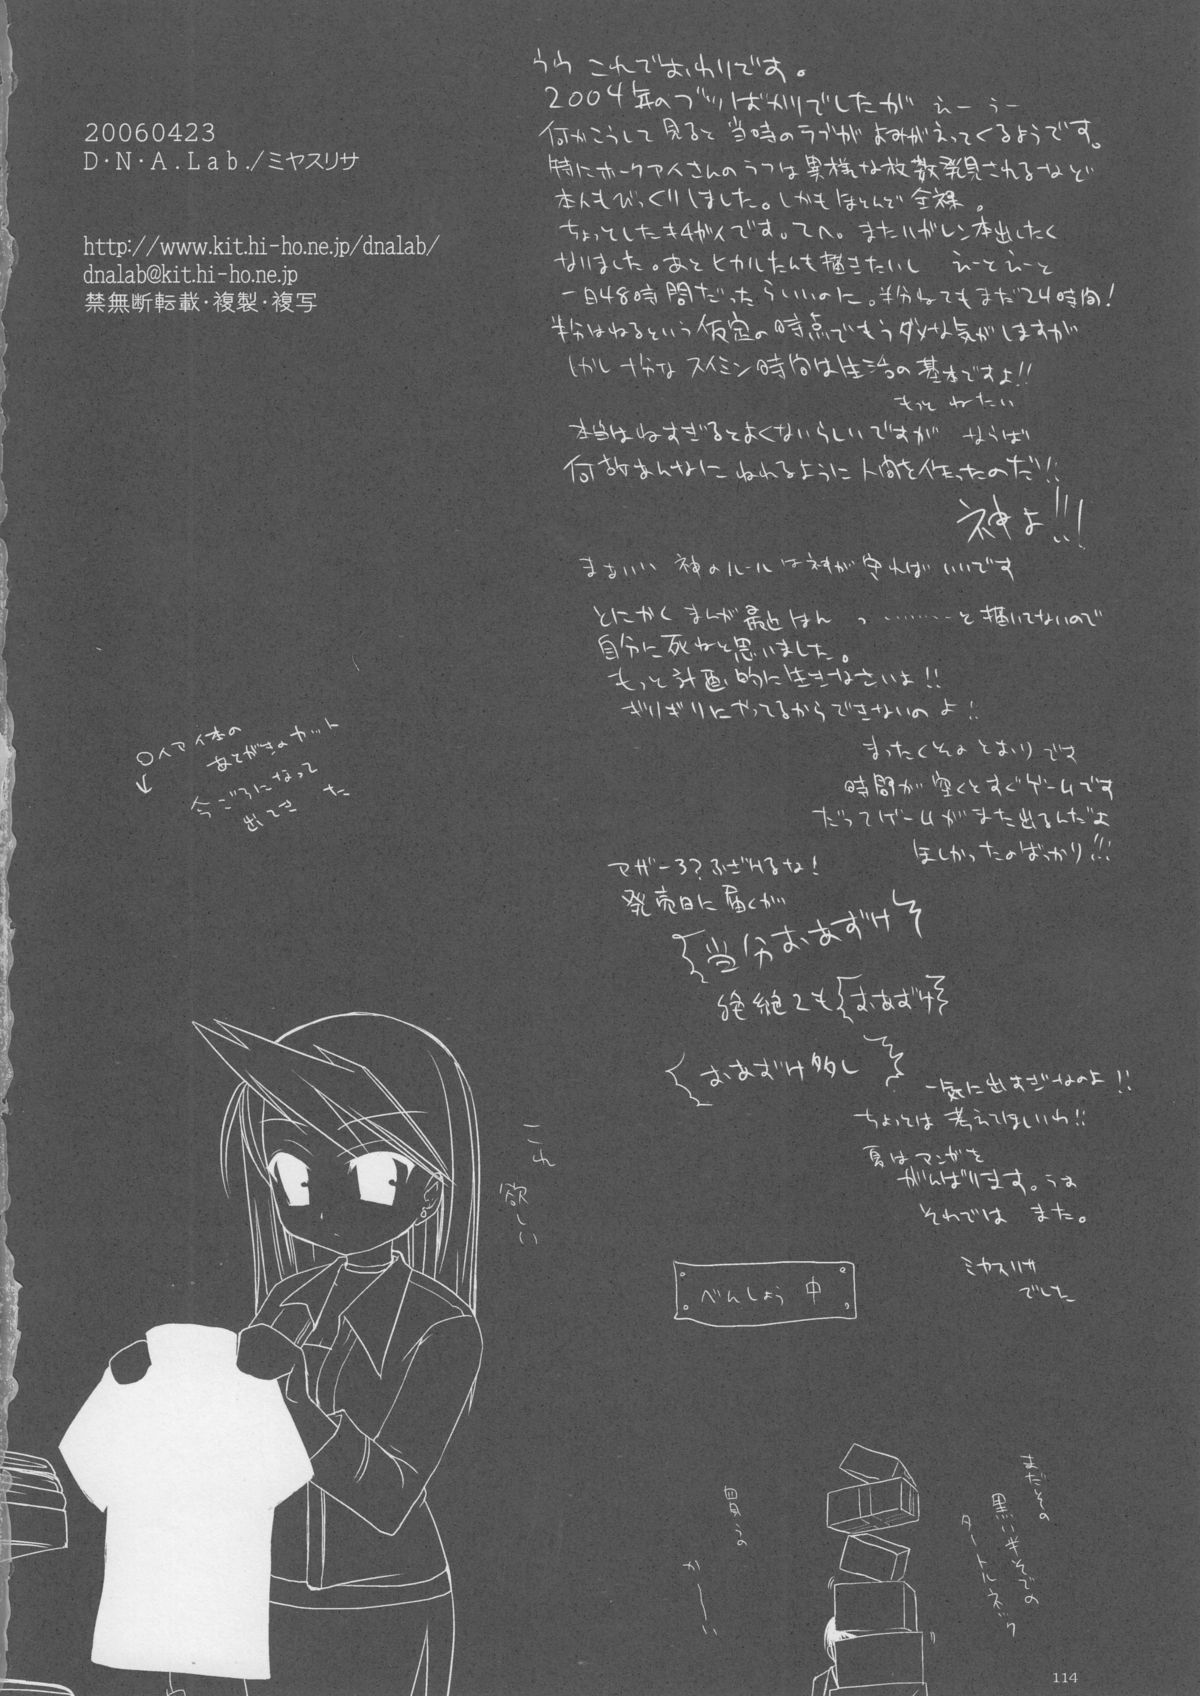 20060423
D·N·A.Lab./ミヤスリサ
http://www.kit.hi-ho.ne.jp/dnalab/
dnalab@kit.hi-ho.ne.jp
禁無断転載・複製・複写
うう これでおわりです。
2004年のブツばかりでしたが えー うー
何かこうして見ると当時のラブがよみがえってくるようです。
特にホークアイさんのラフは異様な枚数発見されるなど
本人もびっくりしました。しかもほとんど全裸。
ちょっとしたキチガイです。てへ。またハガレン本出したく
なりました。あとヒカルたんも描きたいし えーとえーと
一日48時間だったらいいのに。半分ねてもまだ24時間!
半分はねるという仮定の時点でもうダメな気がしますが
しかし十分なスイミン時間は生活の基本ですよ!!
もっと ねたい
本当はねすぎるとよくないらしいですが ならば
何故あんなにねれるように人間を作ったのだ!!
神よ!!!
まあいい 神のルールは神が守ればいいです
とにかくまんが最近はんっ………と描いてないので
自分に死ねと思いました。
もっと計画的に生きなさいよ!!
ぎりぎりにやってるからできないのよ!!
まったくそのとおりです
時間が空くとすぐゲームです
だってゲームがまた出るんだよ
ほしかったのばっかり!!!
マザー3?ふざけるな!
発売日に届くが
当分おあずけ
絶絶ても おあずけ
おあずけ多し
一気に出すぎなのよ!!
ちょっとは考えてほしいわ!!
夏はマンガを
がんばります。うお
それでは また。
ミヤスリサ
でした
〇イアイ本の
あとがきのカット
今ごろになって
出てきた
これ
欲しい
べんしょう中
買うの
かーい
まだその
黒い半そでの
タートルネック
114